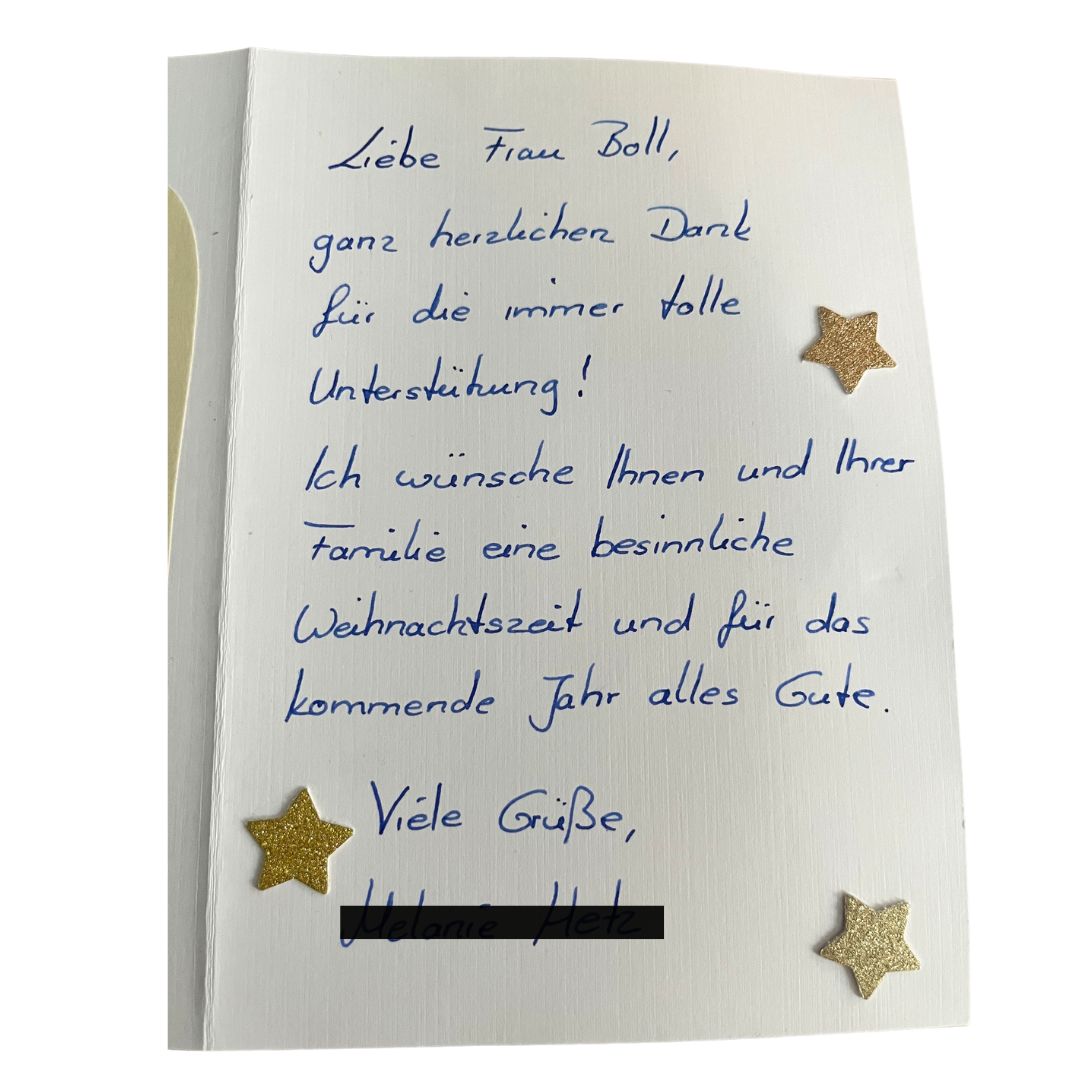 Liebe Frau Boll,
ganz herzlichen Dank
für die immer tolle
Unterstützung!
Ich wünsche Ihnen und Ihrer
Familie eine besinnliche
Weihnachtszeit und für das
kommende Jahr alles Gute.
Viele Grüße,